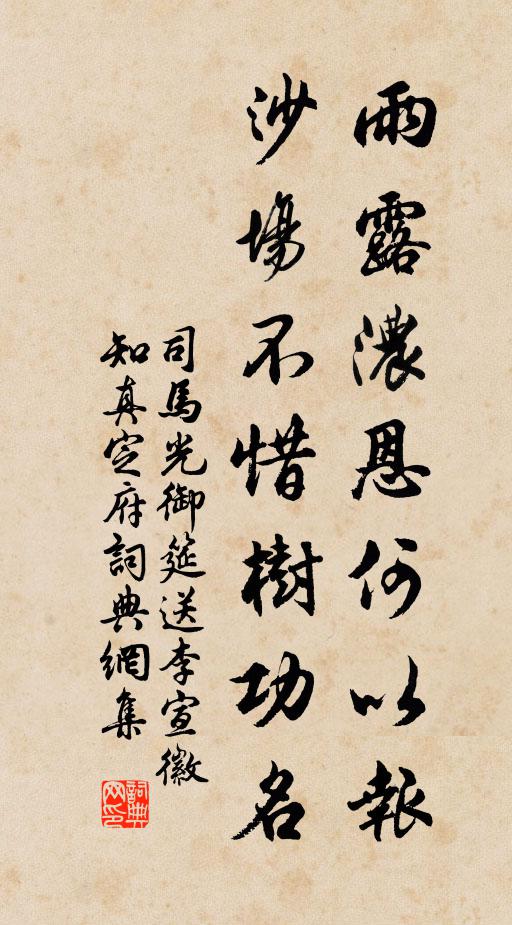 雨露濃恩何以報
沙場不惜樹功名
司馬光御筵送李宣徽
知真定府詞典網集
詞典
网印